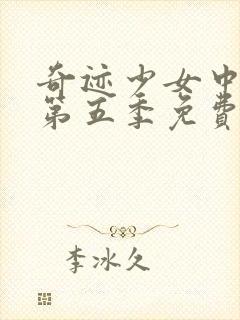 奇迹少女中
第五季免费
李冰久